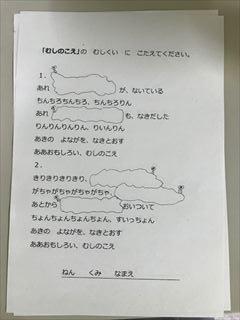 「むしのこえ」の　むしくい　に　こたえてください。
１．
あれ　が、ないている
ちんちろちんちろ、ちんちろりん
あれ　も、なきだした
りんりんりんりん、りいんりん
あきの　よながを、なきとおす
ああおもしろい、むしのこえ
２．
きりきりきりきり、
がちゃがちゃがちゃがちゃ、
あとから　おいついて
ちょんちょんちょんちょん、すいっちょん
あきの　よながを、なきとおす
ああおもしろい、むしのこえ
ねん　くみ　なまえ